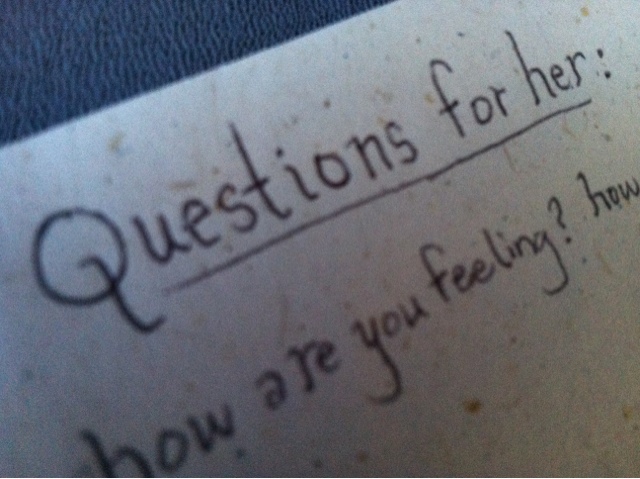 Questions for her:
how are you feeling? how